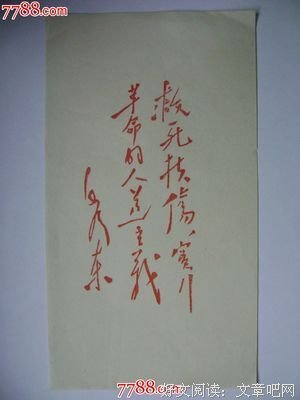 7788.com
救死扶伤，实行
革命的人道主义
毛泽东
7788.com
好文阅读：文章吧网